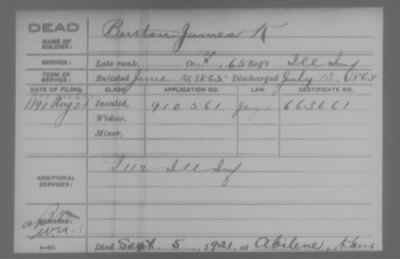 DEAD
NAME OF SOLDIER: Burton James K
SERVICE: Late rank, Co. K, 65 Reg't Ill Inf
TERM OF SERVICE: Enlisted June 1865 Discharged July 13, 1865
DATE OF FILING. CLASS. APPLICATION NO. LAW. CERTIFICATE NO.
1890 Aug Invalid, 910561 663661
Widow,
Minor,
ADDITIONAL SERVICES: I 112 Ill Inf
REMARKS:
Died Sept. 5, 1921, at Abilene, Kans